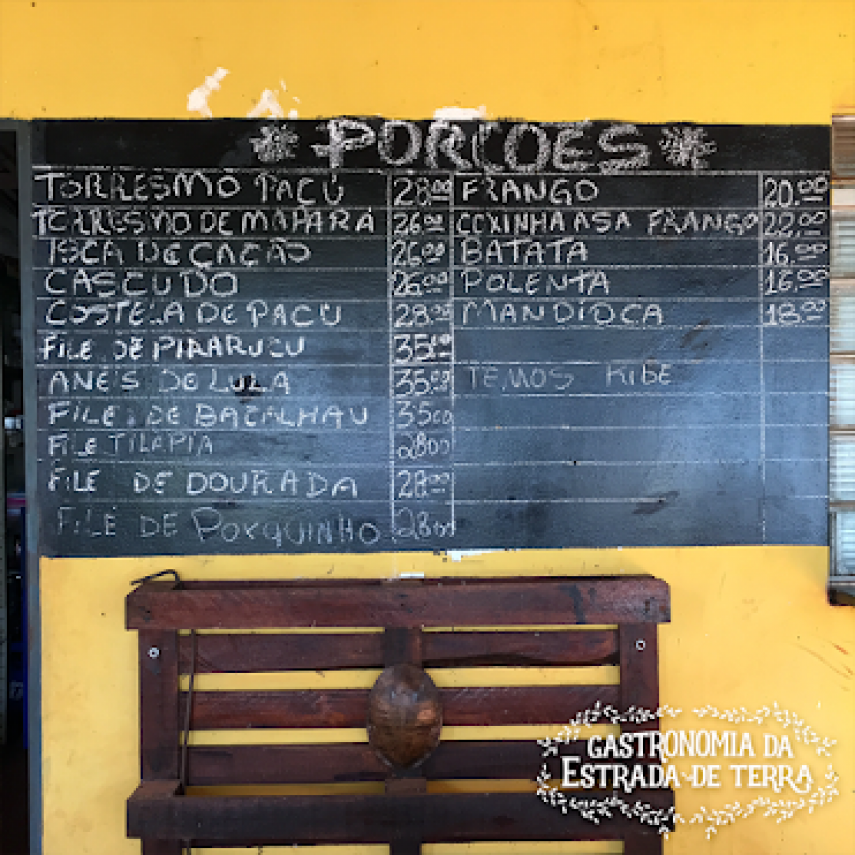 * PORÇOES *
TORRESMO PACÚ 28.00
TORRESMO DE MAPARÁ 26.00
ISCA DE CAÇÃO 26.00
CASCUDO 26.00
COSTELA DE PACU 28.00
FILE DE PIRARUCU 35.00
ANEIS DE LULA 35.00
FILE DE BACALHAU 35.00
FILE TILAPIA 28.00
FILE DE DOURADA 28.00
FILE DE PORQUINHO 28.00
FRANGO 20.00
COXINHA ASA FRANGO 22.00
BATATA 16.00
POLENTA 16.00
MANDIOCA 18.00
TEMOS KIBE
GASTRONOMIA DA
ESTRADA DE TERRA